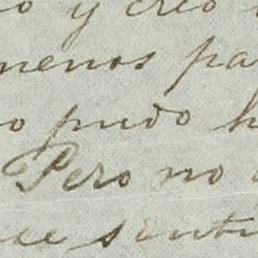 o y creo
menos pa
o pudo h
Pero no
ce senti